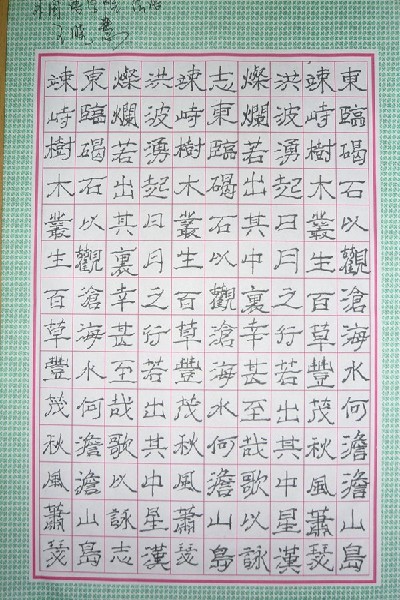 東臨碣石以觀滄海水何澹澹山島
竦峙樹木叢生百草豐茂秋風蕭瑟
洪波湧起日月之行若出其中星漢
燦爛若出其中裏幸甚至哉歌以詠
志東臨碣石以觀滄海水何澹山島
竦峙樹木叢生百草豐茂秋風蕭瑟
洪波湧起日月之行若出其中星漢
燦爛若出其裏幸甚至哉歌以詠志
東臨碣石以觀滄海水何澹澹山島
竦峙樹木叢生百草豐茂秋風蕭瑟